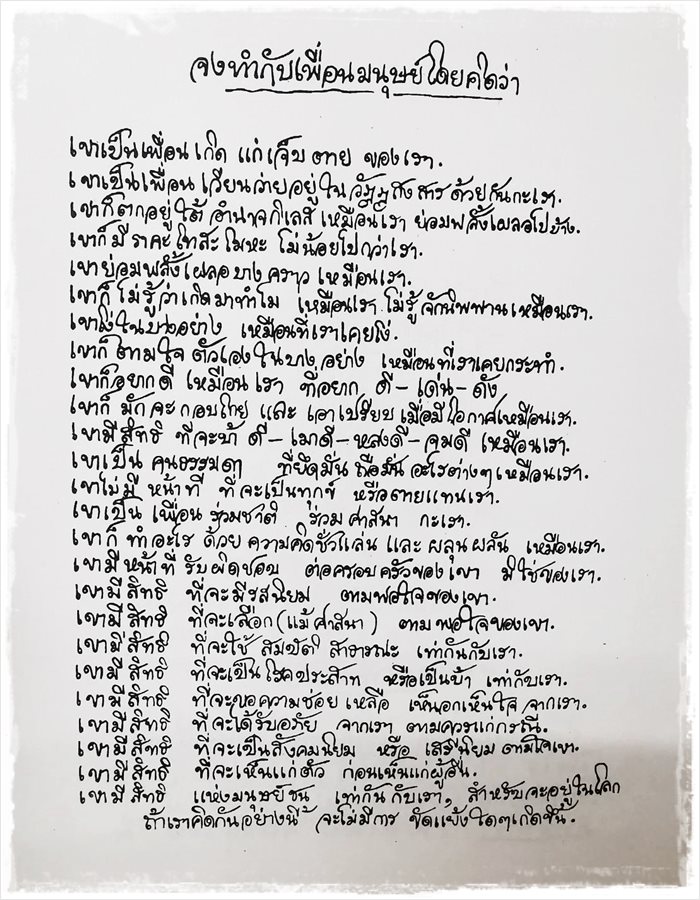 จงทำกับเพื่อนมนุษย์โดยคิดว่า
เขาเป็นเพื่อน เกิด แก่ เจ็บ ตาย ของเรา.
เขาเป็นเพื่อน เวียนว่ายอยู่ใน วัฏฏสงสาร ด้วยกันกะเรา.
เขาก็ตกอยู่ใต้ อำนาจกิเลส เหมือนเรา ย่อมพลั้งเผลอไปบ้าง.
เขาก็มี ราคะ โทสะ โมหะ ไม่น้อยไปกว่าเรา.
เขาย่อมพลั้งเผลอ บางคราว เหมือนเรา.
เขาก็ ไม่รู้ว่าเกิดมาทำไม เหมือนเรา ไม่รู้จักนิพพาน เหมือนเรา.
เขาโง่ในบางอย่าง เหมือนที่เราเคยโง่.
เขาก็ ตามใจ ตัวเอง ในบางอย่าง เหมือนที่เราเคยกระทำ.
เขาก็อยากดี เหมือนเรา ที่อยาก ดี–เด่น–ดัง
เขาก็ มักจะ กอบโกย และ เอาเปรียบ เมื่อมีโอกาสเหมือนเรา.
เขามีสิทธิ ที่จะบ้า ดี–เมาดี–หลงดี–จมดี เหมือนเรา.
เขาเป็น คนธรรมดา ที่ยึดมั่น ถือมั่น อะไรต่างๆ เหมือนเรา.
เขาไม่มี หน้าที่ ที่จะเป็นทุกข์ หรือตายแทนเรา.
เขาเป็น เพื่อน ร่วมชาติ ร่วม ศาสนา กะเรา.
เขาก็ ทำอะไร ด้วย ความคิดชั่วแล่น และ ผลุนผลัน เหมือนเรา.
เขามี หน้าที่ รับผิดชอบ ต่อครอบครัวของเขา มิใช่ของเรา.
เขามี สิทธิ ที่จะมีรสนิยม ตามพอใจของเขา.
เขามี สิทธิ ที่จะเลือก (แม้ศาสนา) ตามพอใจของเขา.
เขามี สิทธิ ที่จะใช้ สมบัติ สาธารณะ เท่ากันกับเรา.
เขามี สิทธิ ที่จะเป็นโรคประสาท หรือเป็นบ้า เท่ากับเรา.
เขามี สิทธิ ที่จะขอความช่วยเหลือ เห็นอกเห็นใจ จากเรา.
เขามี สิทธิ ที่จะได้รับอภัย จากเรา ตามควรแก่กรณี.
เขามี สิทธิ ที่จะเป็นสังคมนิยม หรือ เสรีนิยม ตามใจเขา.
เขามี สิทธิ ที่จะเห็นแก่ตัว ก่อนเห็นแก่ผู้อื่น.
เขามี สิทธิ แห่งมนุษยชน เท่ากันกับเรา, สำหรับจะอยู่ในโลก
ถ้าเราคิดกันอย่างนี้ จะไม่มีการ ขัดแย้งใดๆเกิดขึ้น.